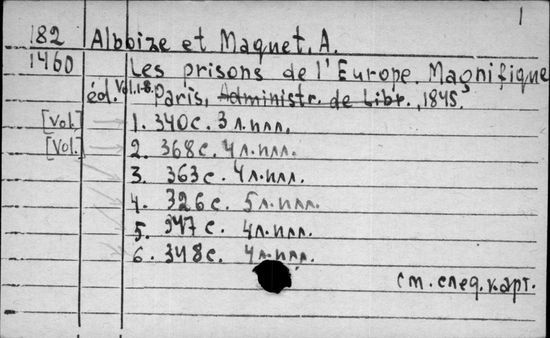 1
182 Alboize et Maquet, A.
1460 Les prisons de l'Europe. Magnifique
éd. Vol. 1-8. Paris, Administr. de Libr., 1845.
[Vol.] 1. 340 с. 3 л. илл.
[Vol.] 2. 368 с. 4 л. илл.
3. 363 с. 4 л. илл.
4. 326 с. 5 л. илл.
5. 347 с. 4 л. илл.
6. 348 с. 4 л. илл.
см. след. карт.